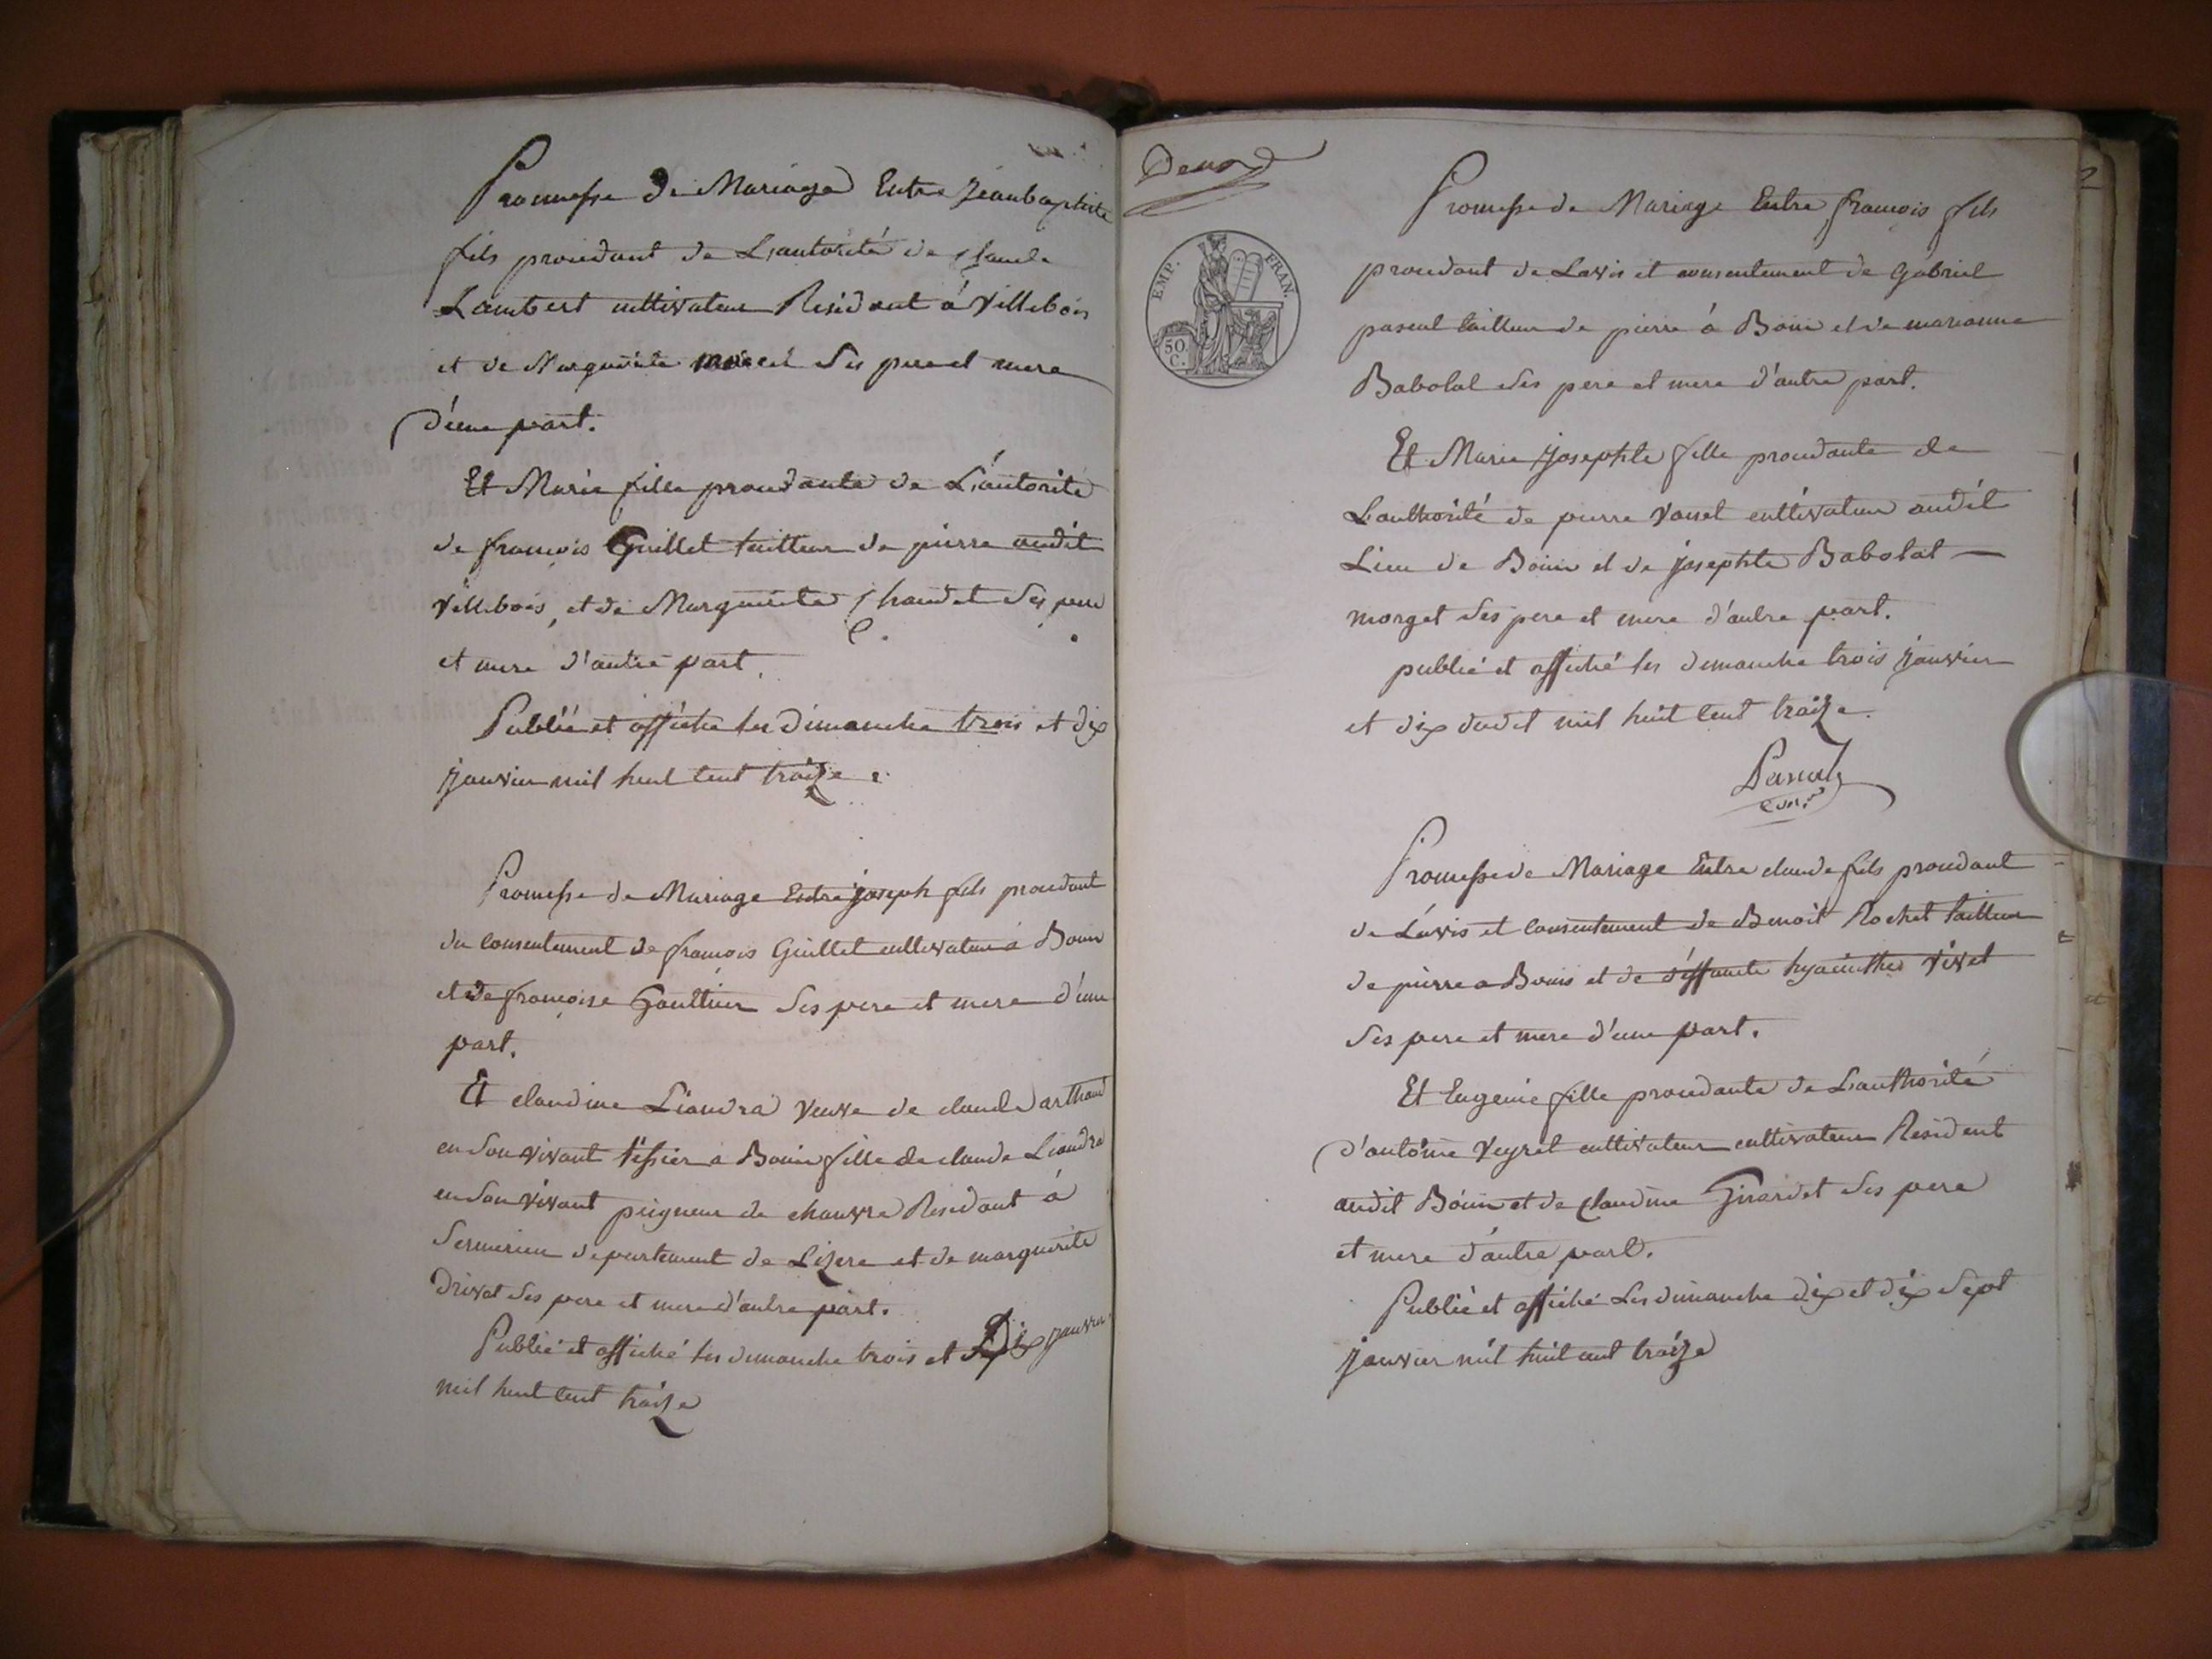 Promesse de Mariage Entre jeanbaptiste
fils procedant de L'autorité de Claude
Lambert cultivateur Residant á Villebois
et de Marguerite ses pere et mere
d'une part.
Et Marie fille procedante de L'autorité
de françois Guillet tailleur de pierre audit
Villebois, et de Marguerite Chaudet ses pere
et mere d'autre part.
Publié et affiché les dimanche trois et dix
janvier mil huit cent traize.
Promesse de Mariage Entre joseph fils procedant
du consentement de françois Guillet cultivateur á Bouis
et de françoise Gaultier ses pere et mere d'une
part.
Et claudine Liandra veuve de claude arthaud
en son vivant tessier a Bouis fille de claude Liandra
en son vivant peigneur de chanvre Residant á
Sermerieu departement de Lizere et de marguerite
Drivet ses pere et mere d'autre part.
Publié et affiché les dimanche trois et Dix janvier
mil huit cent traize
Deux
EMP. FRAN.
50 C.
2
Promesse de Mariage Entre françois fils
procedant de Lavis et consentement de Gabriel
pascal tailleur de pierre á Bouis et de marianne
Babolat ses pere et mere d'autre part.
Et Marie josephte fille procedante de
L'authorité de pierre Vasset cultivateur audit
Lieu de Bouis et de josephte Babolat
morget ses pere et mere d'autre part.
publié et affiché les dimanche trois janvier
et dix dudit mil huit cent traize.
Pascal
Promesse de Mariage Entre claude fils procedant
de Lavis et consentement de Benoit Rochet tailleur
de pierre a Bouis et de déffuncte hyacinthe vivet
ses pere et mere d'une part.
Et Eugenie fille procedante de L'authorité
d'antoine Veyret cultivateur cultivateur Resident
audit Bouis et de Claudine Girardet ses pere
et mere d'autre part.
Publié et affiché Les dimanche dix et dix sept
janvier mil huit cent traize